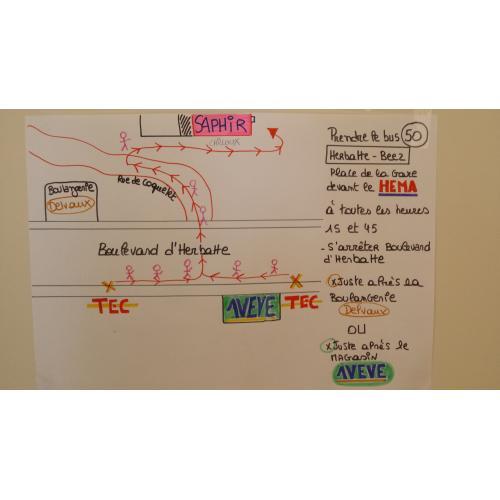 SAPHIR
CAILLOUX
Rue de Coquelet
Boulangerie
Delvaux
Boulevard d'Herbatte
TEC
AVEVE
TEC
Prendre le bus 50
Herbatte - Beez
Place de la Gare
devant le HEMA
à toutes les heures
15 et 45
- S'arrêter Boulevard
d'Herbatte
x Juste après la
Boulangerie
Delvaux
OU
x Juste après le
MAGASIN
AVEVE